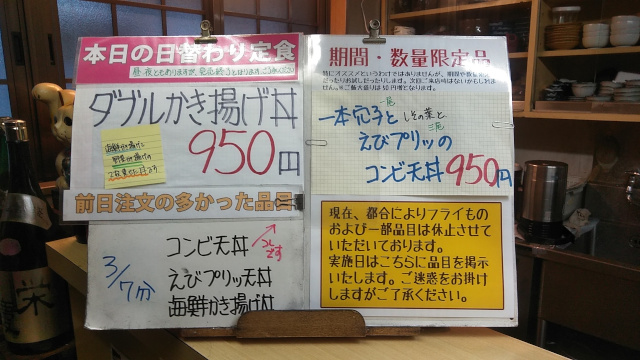 本日の日替わり定食
昼、夜ともありますが、完売終了となります。ご了承ください
ダブルかき揚げ丼
950円
海鮮かき揚げと
野菜かき揚げの
2枚乗せになります
前日注文の多かった品目
3/7分
コンビ天丼
えびプリッ天丼
海鮮かき揚げ丼
期間・数量限定品
特にオススメというわけではありませんが、期間や数量限定
だったりお試しだったりします。次回ご来店時はないかもしれま
せん。※ご飯大盛りは50円増となります。
一本穴子と しその葉と、
一尾
えびプリッの
三尾
コンビ天丼 950円
現在、都合によりフライもの
および一部品目は休止させて
いただいております。
実施日はこちらに品目を掲示
いたします。ご迷惑をお掛け
しますがご了承ください。
栄